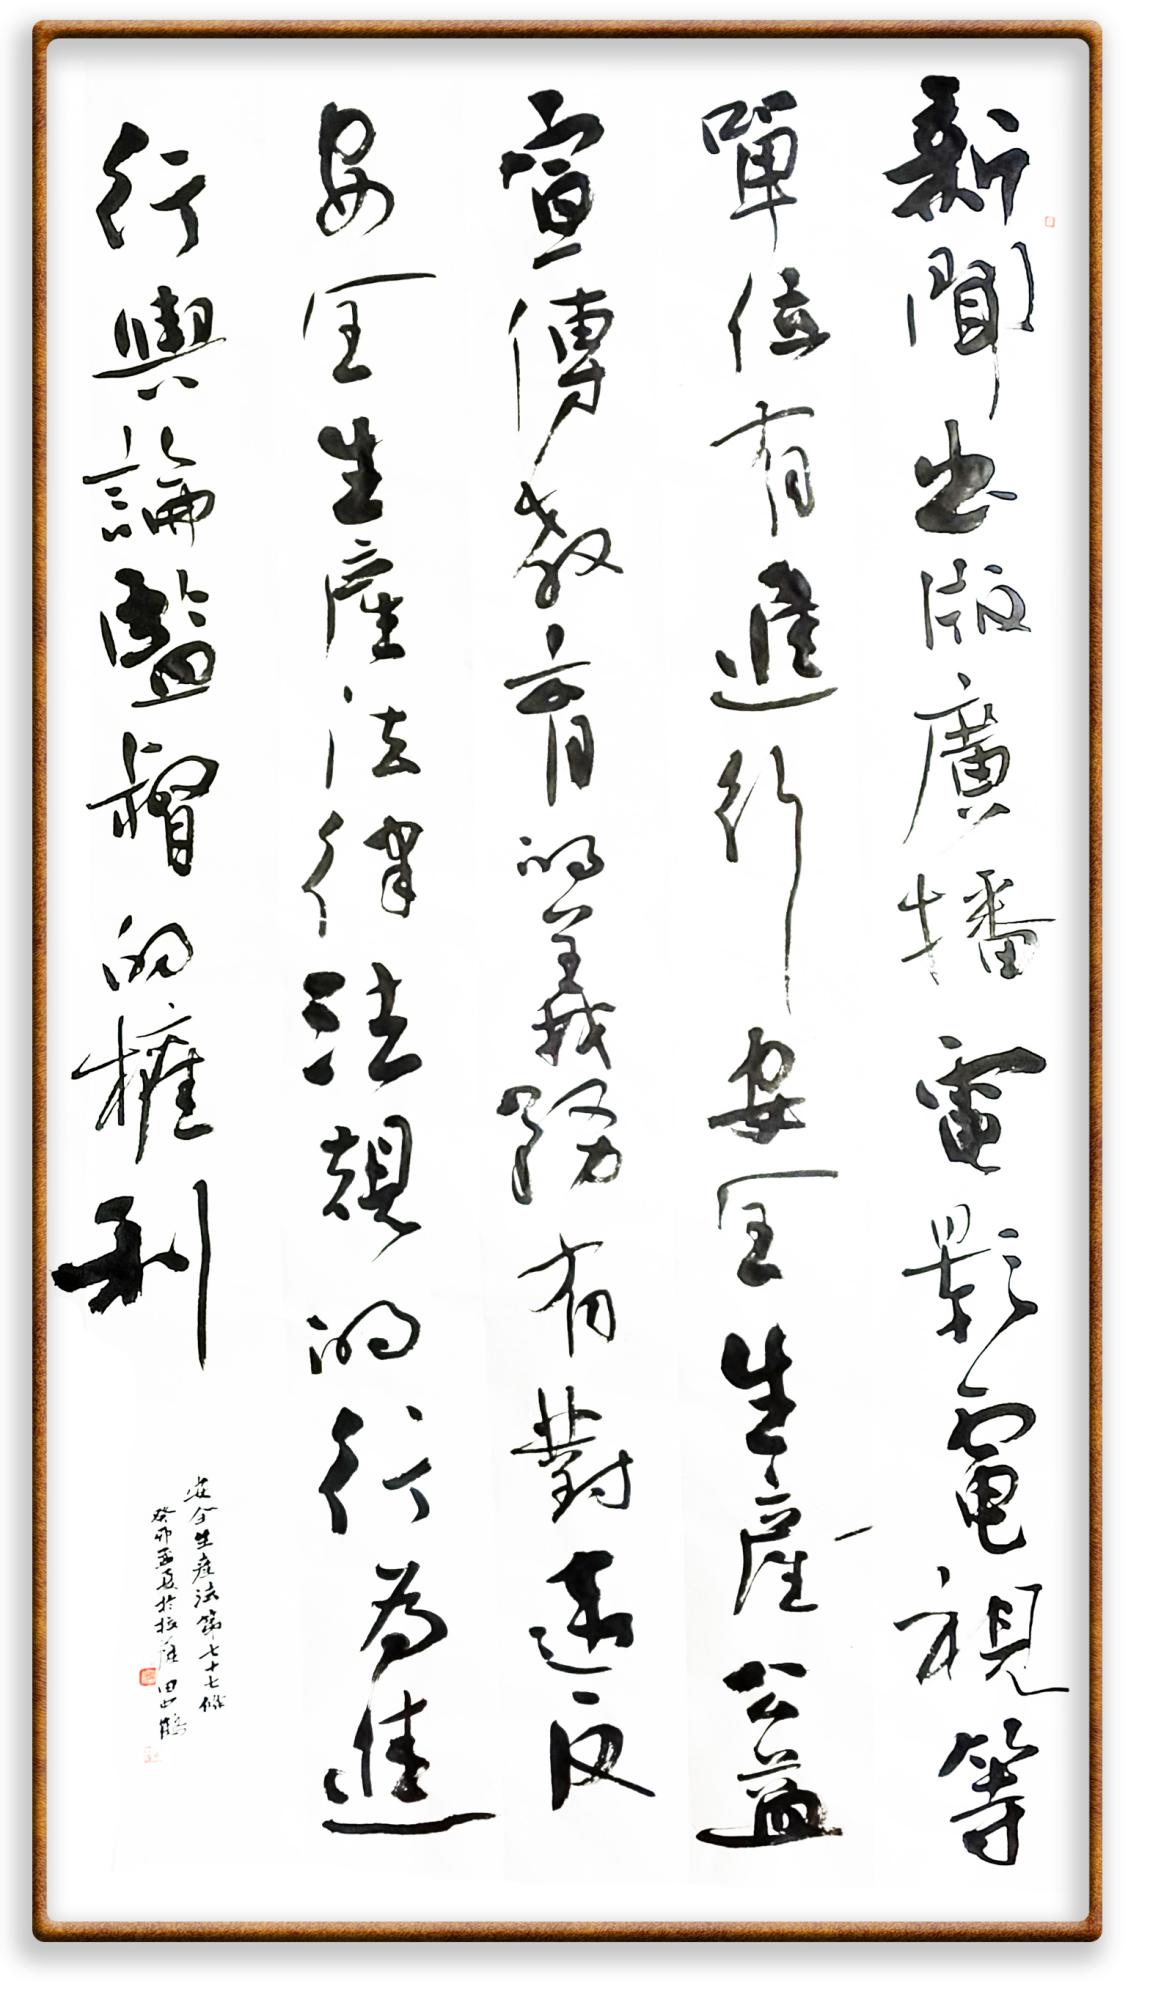 新聞出版廣播電影電視等
單位有進行安全生產公益
宣傳教育的義務有對違反
安全生產法律法規的行為進
行輿論監督的權利
安全生產法第七十七條
癸卯孟夏於